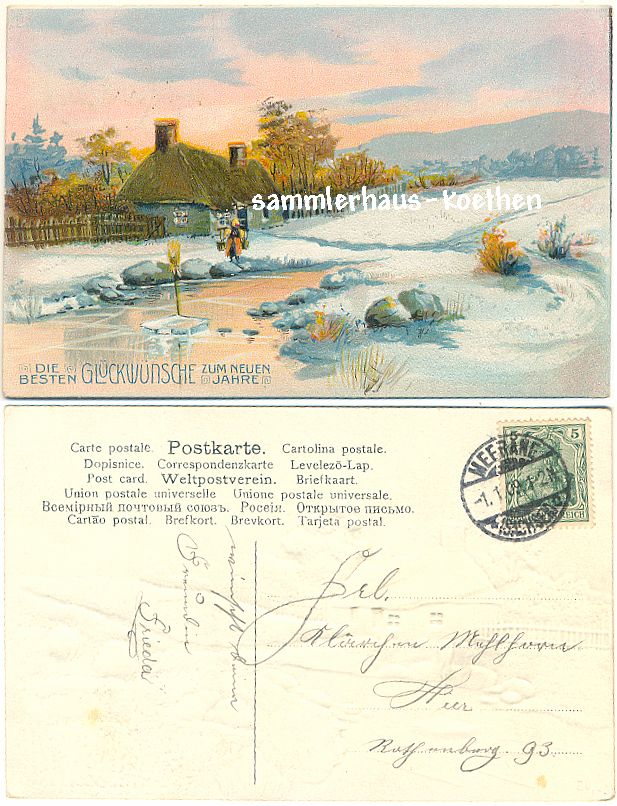 sammlerhaus-Koethen
DIE BESTEN GLÜCKWÜNSCHE ZUM NEUEN JAHRE
Carte postale. Postkarte. Cartolina postale.
Dopisnice. Correspondenzkarte Levelező-Lap.
Post card. Weltpostverein. Briefkaart.
Union postale universelle Unione postale universale.
Всемірный почтовый союзъ. Росеія. Открытое письмо.
Cartão postal. Brefkort. Brevkort. Tarjeta postal.
5
MEERANE
-1.1.
REICH
wünscht Deine
Freundin
Frieda
Frl.
Klärchen Mehlhorn
Hier
Rothenberg. 93.